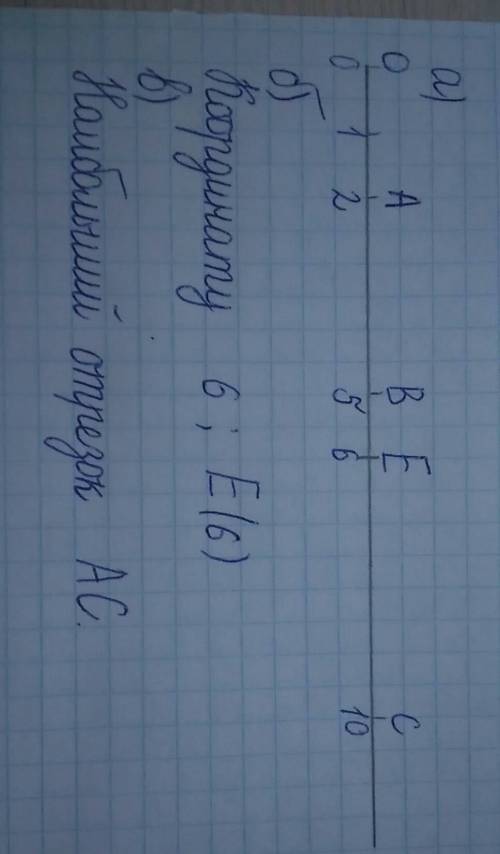 а)
O A B E C
0 1 2 5 6 10
б)
Координату 6; E(6)
в)
Наибольший отрезок AC.